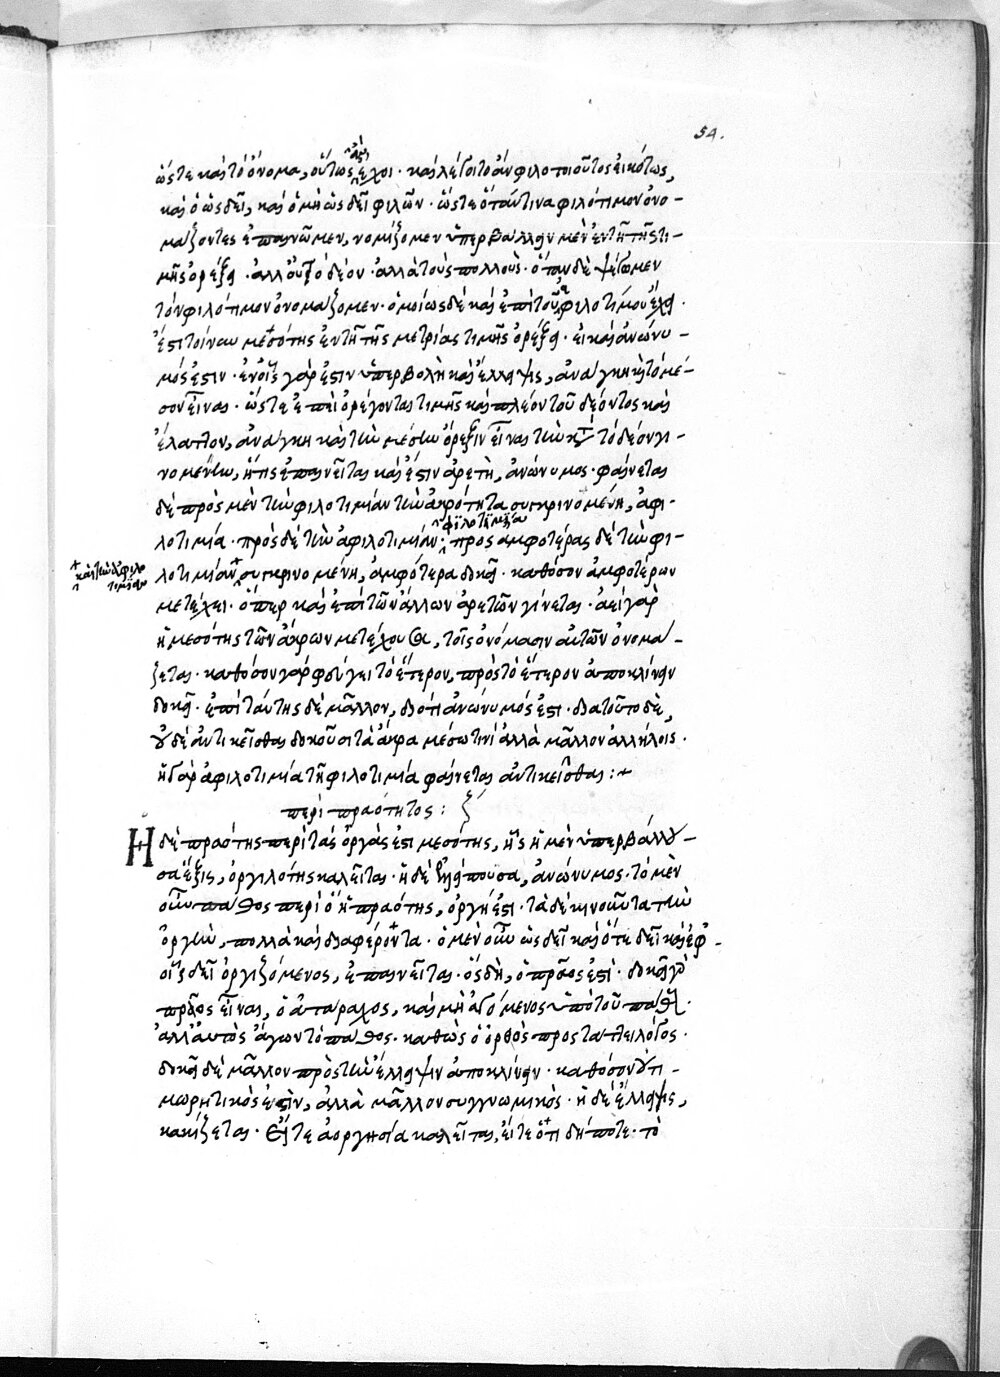 54.
ὥστε καὶ τὸ ὄνομα, οὕτως ἂν ἔχοι· καὶ λέγοιτο ἂν φιλοτοιοῦτος εἰκότως,
καὶ ὁ ὡς δεῖ, καὶ ὁ μὴ ὡς δεῖ φιλῶν· ὥστε ὅταν τινα φιλότιμον ὀνο-
μάζοντες ἐπαινῶμεν, νομίζομεν ὑπερβάλλειν μὲν ἐν τῇ τῆς τι-
μῆς ὀρέξει· ἀλλ' οὐ τὸ δέον· ἀλλὰ τοὺς πολλούς· ὅταν δὲ ψέγωμεν
τὸν φιλότιμον ὀνομάζομεν· ὁμοίως δὲ καὶ ἐπὶ τοῦ ἀφιλοτίμου ἔχει·
ἔστι τοίνυν μεσότης ἐν τῇ τῆς μετρίας τιμῆς ὀρέξει· εἰ καὶ ἀνώνυ-
μός ἐστιν· ἐν οἷς γάρ ἐστιν ὑπερβολὴ καὶ ἔλλειψις, ἀνάγκη καὶ τὸ μέ-
σον εἶναι· ὥστε ἐπεὶ ὀρέγονται τιμῆς καὶ πλέον τοῦ δέοντος καὶ
ἔλαττον, ἀνάγκη καὶ τὴν μέσην ὄρεξιν εἶναι τὴν κατὰ τὸ δέον γι-
νομένην, ἥτις ἐπαινεῖται καὶ ἔστιν ἀρετὴ, ἀνώνυμος· φαίνεται
δὲ πρὸς μὲν τὴν φιλοτιμίαν τὴν ἀκρότητα συγκρινομένη, ἀφι-
λοτιμία· πρὸς δὲ τὴν ἀφιλοτιμίαν· φιλοτιμία πρὸς ἀμφοτέρας δὲ τὴν φι-
λοτιμίαν καὶ τὴν ἀφιλοτιμίαν συγκρινομένη, ἀμφότερα δοκεῖ· καθόσον ἀμφοτέρων
μετέχει· ὅπερ καὶ ἐπὶ τῶν ἄλλων ἀρετῶν γίνεται· ἀεὶ γὰρ
ἡ μεσότης τῶν ἄκρων μετέχουσα, τοῖς ὀνόμασιν αὐτῶν ὀνομά-
ζεται· καθόσον γὰρ φεύγει τὸ ἕτερον, πρὸς τὸ ἕτερον ἀποκλίνειν
δοκεῖ· ἐπὶ ταύτης δὲ μᾶλλον, διότι ἀνώνυμός ἐστι· διατοῦτο δὲ,
οὐδὲ ἀντικεῖσθαι δοκοῦσι τὰ ἄκρα μέσω τινί ἀλλὰ μᾶλλον ἀλλήλοις·
ἡ γὰρ ἀφιλοτιμία τῇ φιλοτιμία φαίνεται ἀντικεῖσθαι:+
περὶ πραότητος: ζ
Ἡ δὲ πραότης περὶ τὰς ὀργάς ἐστι μεσότης, ἧς ἡ μὲν ὑπερβάλλου-
σα ἕξις, ὀργιλότης καλεῖται· ἡ δὲ ἐλλείπουσα, ἀνώνυμος· τὸ μὲν
οὖν πάθος περὶ ὃ ἡ πραότης, ὀργή ἐστι· τὰ δὲ κινοῦντα τὴν
ὀργὴν, πολλὰ καὶ διαφέροντα· ὁ μὲν οὖν ὡς δεῖ καὶ ὅτε δεῖ καὶ ἐφ'
οἷς δεῖ ὀργιζόμενος, ἐπαινεῖται· ὃς δὴ, ὁ πρᾶός ἐστι· δοκεῖ γὰρ
πρᾶος εἶναι, ὁ ἀτάραχος, καὶ μὴ ἀγόμενος ὑπὸ τοῦ πάθους·
ἀλλ' αὐτὸς ἄγων τὸ πάθος· καθὼς ὁ ὀρθὸς προστάττει λόγος·
δοκεῖ δὲ μᾶλλον πρὸς τὴν ἔλλειψιν ἀποκλίνειν· καθόσον οὐ τι-
μωρητικός ἐστὶν, ἀλλὰ μᾶλλον συγγνωμικὸς· ἡ δὲ ἔλλειψις,
κακίζεται· εἴτε ἀοργησία καλεῖται, εἴτε ὅ,τι δήποτε· τὸ